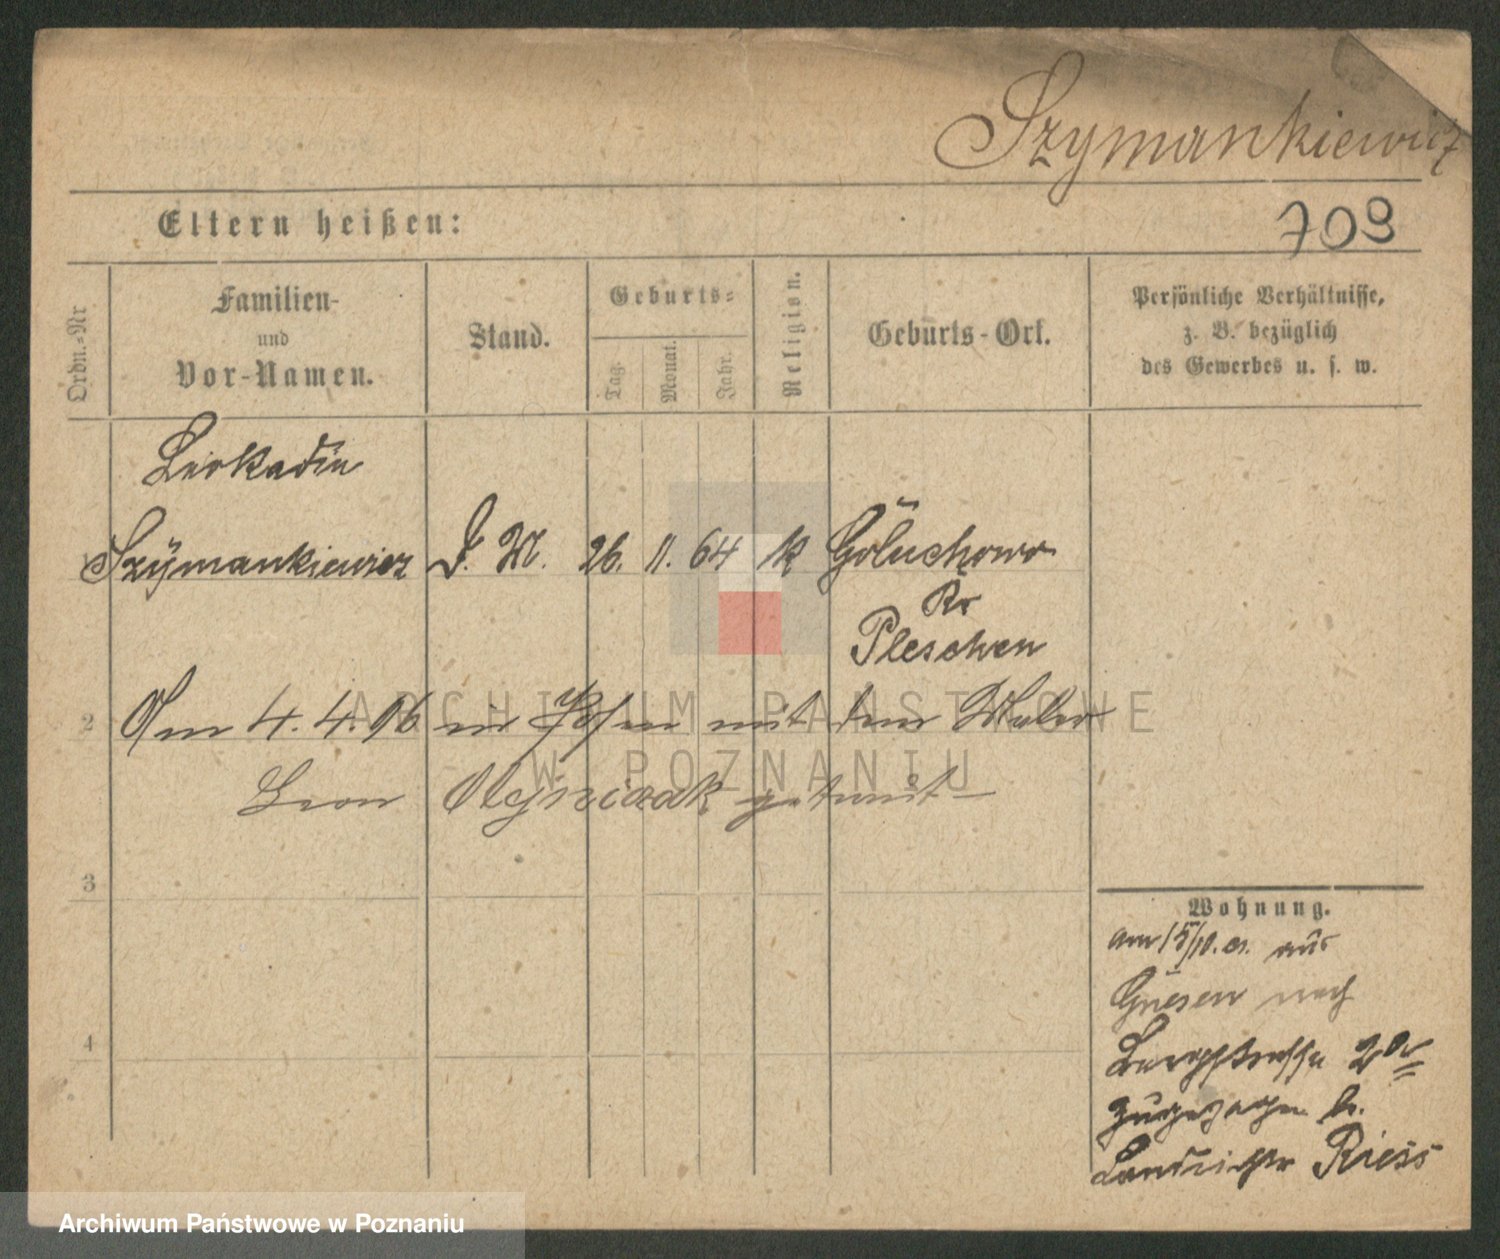 Szymankiewicz
Eltern heißen:
709
Ordn.-Nr
Familien-
und
Vor-Namen.
Stand.
Geburts-
Tag.
Monat.
Jahr.
Religion.
Geburts-Ort.
Persönliche Verhältnisse,
z. B. bezüglich
des Gewerbes u. s. w.
Leokadia
Szÿmankiewicz D. M. 26. 11. 64 k Goluchowo
Kr
Pleschen
2 Am 4. 4. 06 in Posen mit dem Maler
Leon Olejniczak getraut
3
4
Wohnung.
am 15/10. 01. aus
Gnesen nach
Bergstrasse 2a
zugezogen b.
Landrichter Riess
ARCHIWUM PAŃSTWOWE
W POZNANIU
Archiwum Państwowe w Poznaniu